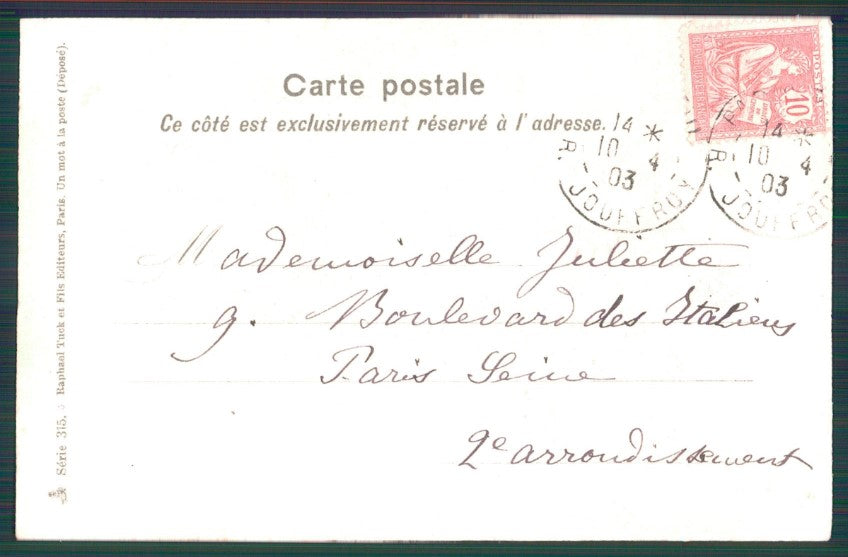 Carte postale
Ce côté est exclusivement réservé à l'adresse.
POSTES
10
14 *
10 4
03
R. JOUFFROY
14 *
10 4
03
R. JOUFFRO
Mademoiselle Juliette
9. Boulevard des Italiens
Paris Seine
2e arrondissement
Série 315. Raphael Tuck et Fils Editeurs, Paris. Un mot à la poste (Déposé).